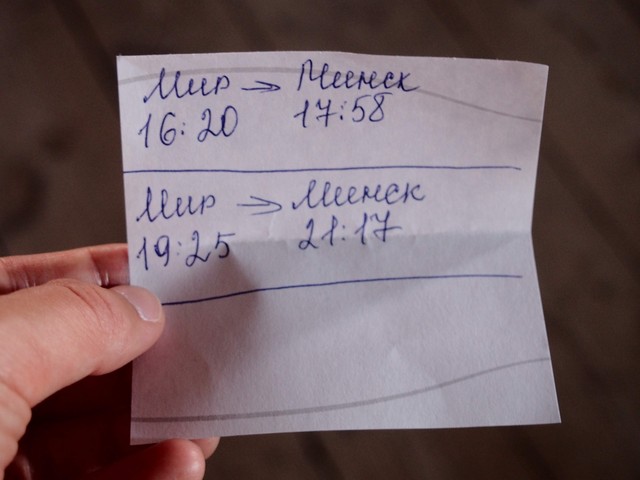 Мир → Минск
16:20 17:58
Мир → Минск
19:25 21:17